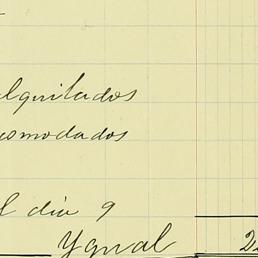 alquilados
comodados
l dia 9
Ygual 2